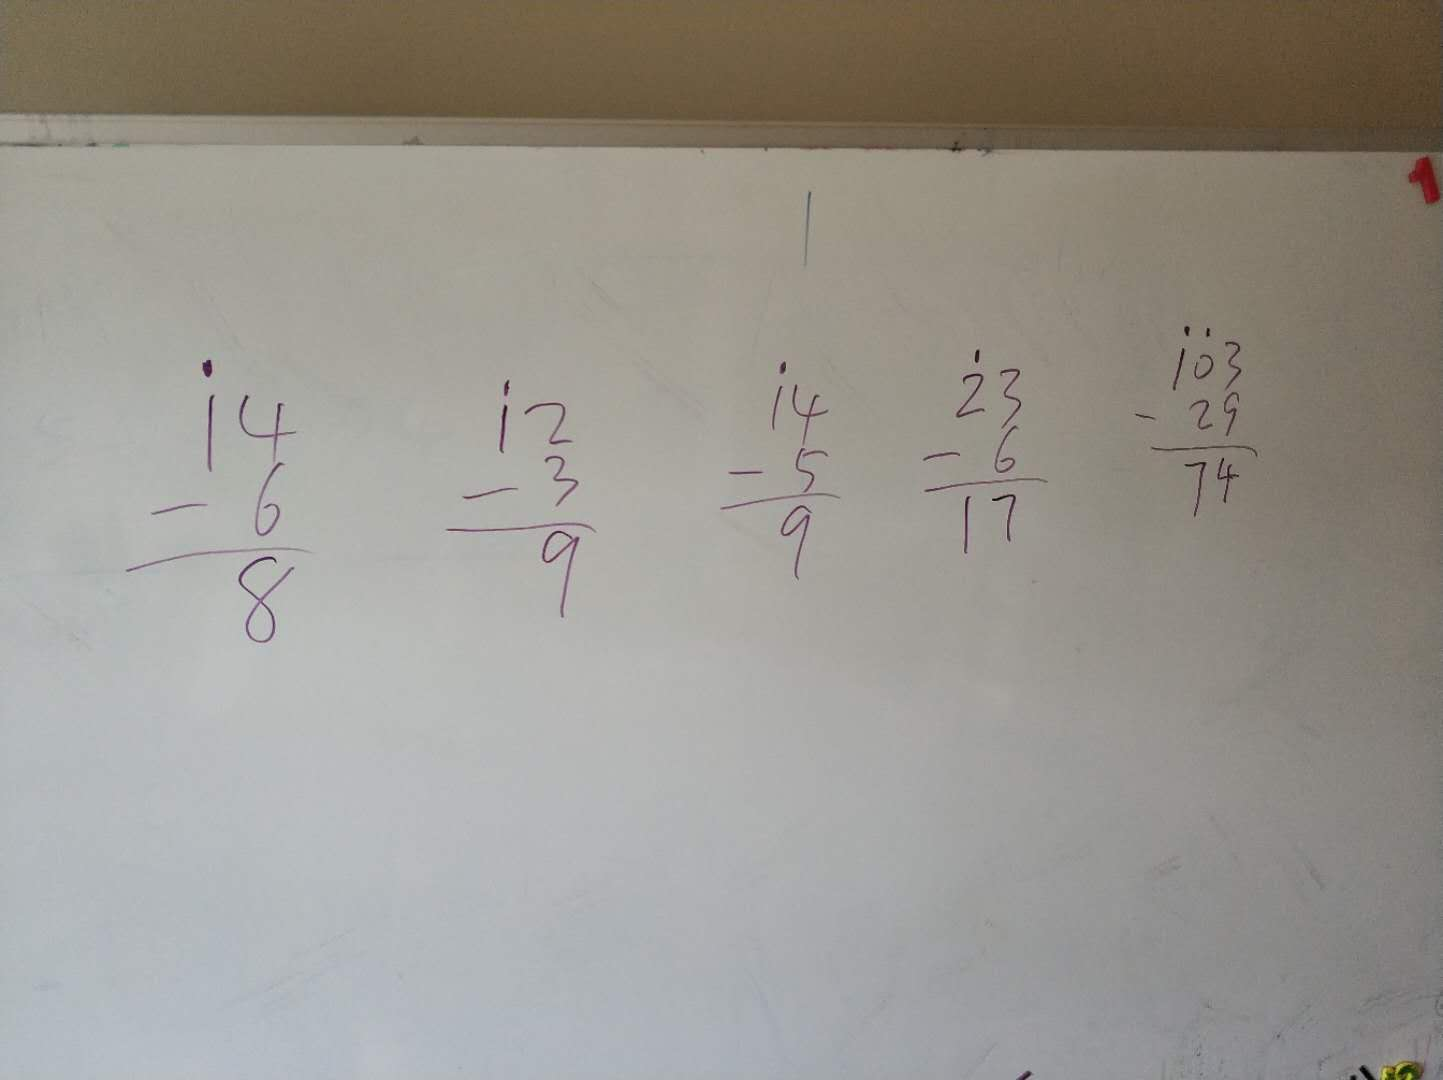 1
14
- 6
8
12
- 3
9
14
- 5
9
23
- 6
17
103
- 29
74